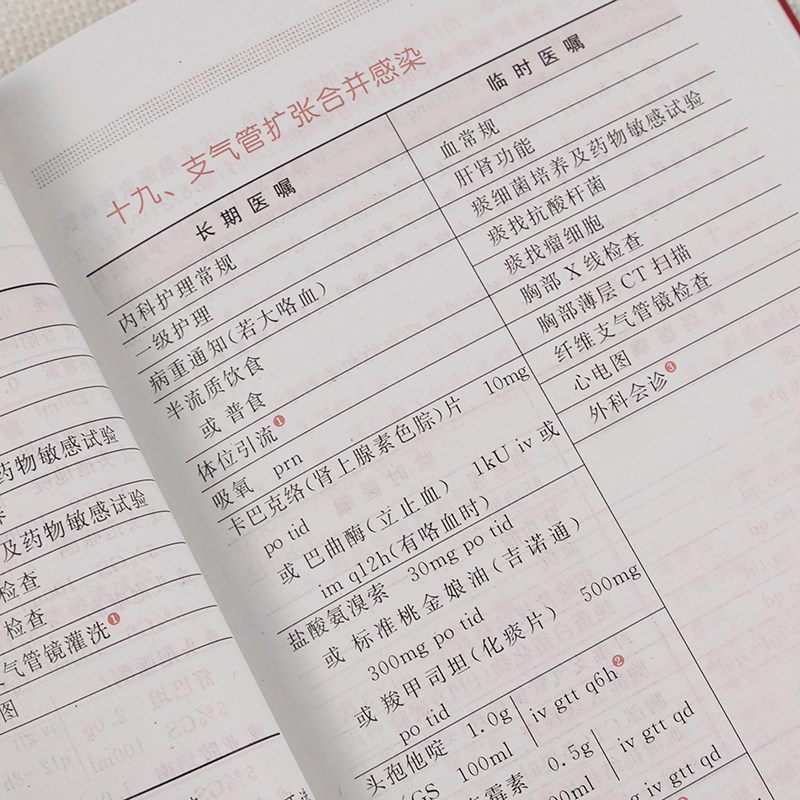 药物敏感试验
及药物敏感试验
检查
检查
气管镜灌洗❶
图
十九、支气管扩张合并感染
长期医嘱
内科护理常规
一级护理
病重通知(若大咯血)
半流质饮食
或 普食
体位引流❶
吸氧 prn
卡巴克络(肾上腺素色腙)片 10mg
po tid
或 巴曲酶(立止血) 1kU iv 或
im q12h(有咯血时)
盐酸氨溴索 30mg po tid
或 标准桃金娘油(吉诺通)
300mg po tid
或 羧甲司坦(化痰片) 500mg
po tid
头孢他啶 1.0g
GS 100ml
iv gtt q6h❷
霉素 0.5g
00ml
iv gtt qd
iv gtt qd
临时医嘱
血常规
肝肾功能
痰细菌培养及药物敏感试验
痰找抗酸杆菌
痰找瘤细胞
胸部 X 线检查
胸部薄层 CT 扫描
纤维支气管镜检查
心电图
外科会诊❸